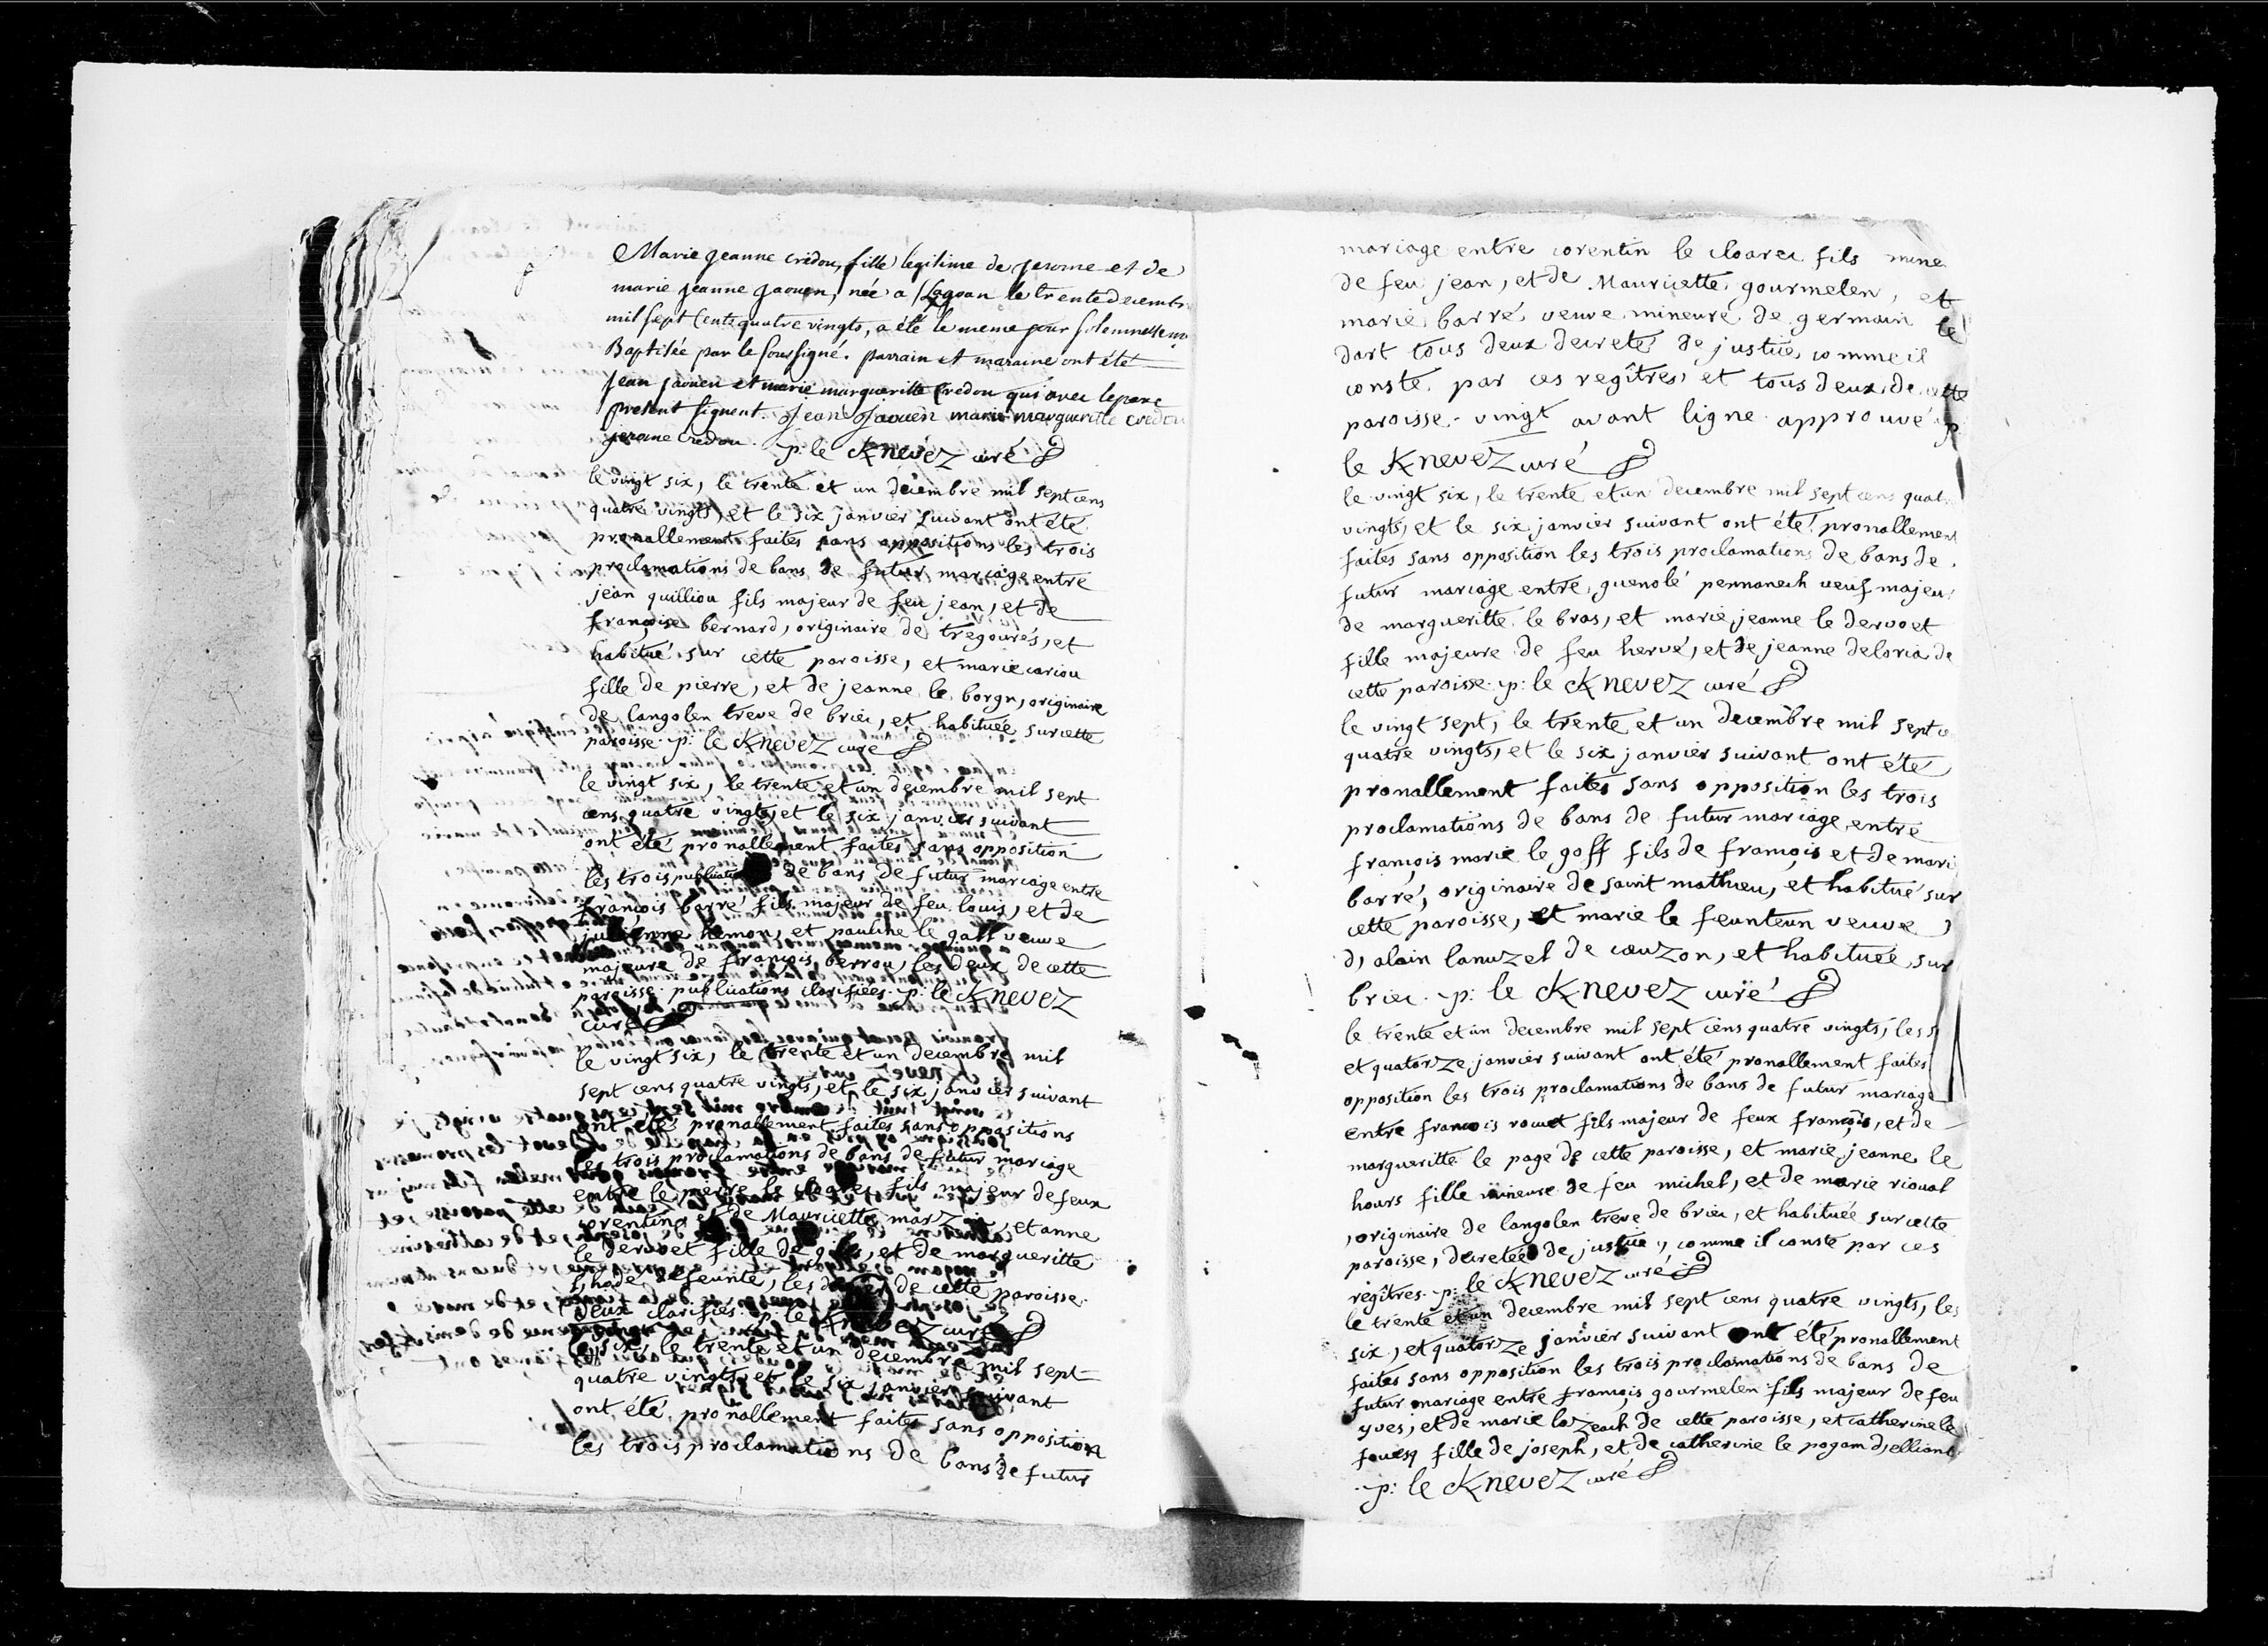 Marie Jeanne Credou, fille legitime de Jerome et de
marie Jeanne Jaouen, née a le trente decembre
mil sept cents quatre vingts, a été le meme jour solemnellement
Baptisée par le soussigné. parrain et maraine ont été
Jean Jaouen et marie margueritte Credou qui avec le pere
present signent. Jean Jaouen marie margueritte credou
jerome Credou. p: le Knevez curé
le vingt six, le trente et un décembre mil sept cens
quatre vingts, et le six janvier suivant ont été
pronallement faites sans oppositions les trois
proclamations de bans de futur mariage entre
jean quilliou fils majeur de feu jean, et de
françoise bernard, originaire de tregourés, et
habitué sur cette paroisse, et marie cariou
fille de pierre, et de jeanne le borgn, originaire
de langolen treve de briec, et habituée sur cette
paroisse. p: le Knevez curé
le vingt six, le trente et un decembre mil sept
cens quatre vingts, et le six janvier suivant
ont été pronallement faites sans opposition
les trois publications de bans de futur mariage entre
françois barré fils majeur de feu louis, et de
julienne hemon, et pauline le gall veuve
majeure de françois berrou, les deux de cette
paroisse. publications clarifiées. p: le Knevez
curé
le vingt six, le trente et un decembre mil
sept cens quatre vingts, et le six janvier suivant
ont été pronallement faites sans oppositions
les trois proclamations de bans de futur mariage
entre le pierre le cloarec fils majeur de feux
corentin, et de Mauricette marzin, et anne
le dervoet fille de et de margueritte
defeunte, les de cette paroisse.
deux clarifiés. p: le Knevez curé
le six, le trente et un decembre mil sept
quatre vingts, et le six janvier suivant
ont été pronallement faites sans opposition
les trois proclamations de bans de futur
mariage entre corentin le cloarec fils mine
de feu jean, et de Mauricette gourmelen, et
marie barré veuve mineure de germain le
dart tous deux decreté de justice comme il
conste par ces regîtres, et tous deux de cette
paroisse. vingt avant ligne approuvé p.
le Knevez curé
le vingt six, le trente et un decembre mil sept cens quat
vingts, et le six janvier suivant ont été pronallement
faites sans opposition les trois proclamations de bans de
futur mariage entre guenolé pennanech veuf majeu
de margueritte le bras, et marie jeanne le dervoet
fille majeure de feu hervé, et de jeanne deloria de
cette paroisse. p: le Knevez curé
le vingt sept, le trente et un decembre mil sept c
quatre vingts, et le six janvier suivant ont été
pronallement faites sans opposition les trois
proclamations de bans de futur mariage entre
françois marie le goff fils de françois et de mari
barré, originaire de saint mathieu, et habitué sur
cette paroisse, et marie le feunteun veuve
d, alain lanuzel de cauzon, et habituée sur
briec. p: le Knevez curé
le trente et un decembre mil sept cens quatre vingts, les s
et quatorze janvier suivant ont été pronallement faites
opposition les trois proclamations de bans de futur mariage
entre francois rouet fils majeur de feux françois, et de
margueritte le page de cette paroisse, et marie jeanne le
hours fille mineure de feu michel, et de marie rioual
, originaire de langolen treve de briec, et habituée sur cette
paroisse, decretée de justice, comme il conste par ces
régîtres. p: le Knevez curé
le trente et un decembre mil sept cens quatre vingts, les
six, et quatorze janvier suivant ont été pronallement
faites sans opposition les trois proclamations de bans de
futur mariage entre françois gourmelen fils majeur de feu
yves, et de marie lazeach de cette paroisse, et catherine le
fouesq fille de joseph, et de catherine le pogam d, elliant
. p: le Knevez curé